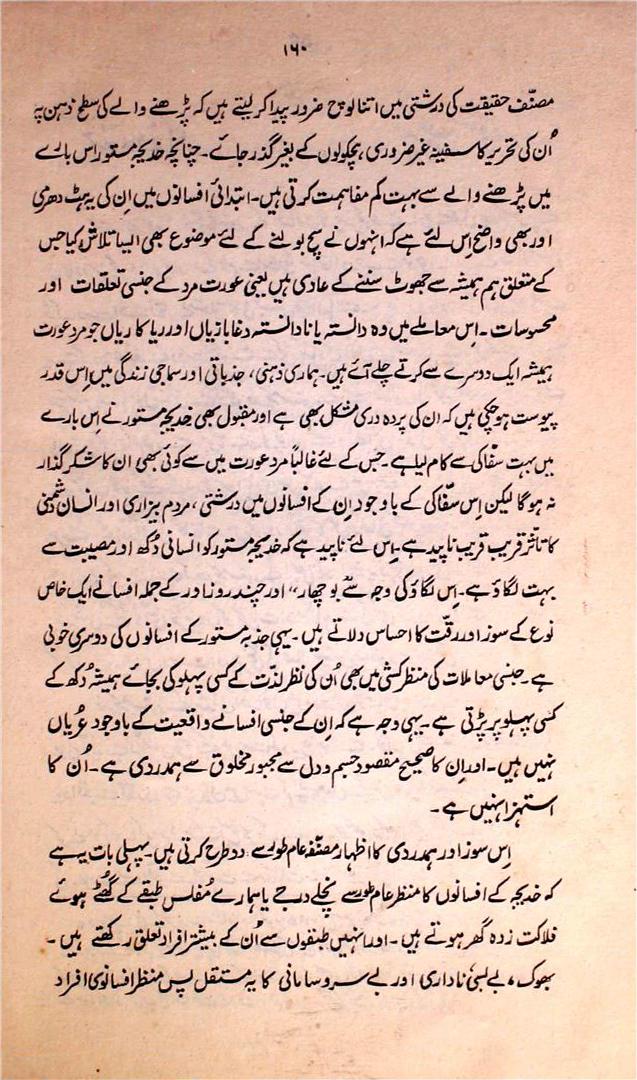 ۱۶۰
مصنّف حقیقت کی درشتی میں اتنا لوچ ضرور پیدا کر لیتے ہیں کہ پڑھنے والے کی سطح ذہن پہ
اُن کی تحریر کا سفینہ غیر ضروری ہچکولوں کے بغیر گذر جائے۔ چنانچہ خدیجہ مستور اس بارے
میں پڑھنے والے سے بہت کم مفاہمت کرتی ہیں۔ ابتدائی افسانوں میں اِن کی یہ ہٹ دھرمی
اور بھی واضح اِس لئے ہے کہ انہوں نے سچ بولنے کے لئے موضوع بھی ایسا تلاش کیا جس
کے متعلق ہم ہمیشہ سے جھوٹ سننے کے عادی ہیں یعنی عورت مرد کے جنسی تعلقات اور
محسوسات۔ اِس معاملے میں وہ دانستہ یا نادانستہ دغابازیاں اور ریاکاریاں جو مرد عورت
ہمیشہ ایک دوسرے سے کرتے چلے آئے ہیں۔ ہماری ذہنی، جذباتی اور سماجی زندگی میں اِس قدر
پیوست ہو چکی ہیں کہ ان کی پردہ دری مشکل بھی ہے اور مقبول بھی خدیجہ مستور نے اِس بارے
میں بہت سفّاکی سے کام لیا ہے۔ جس کے لئے غالباً مرد عورت میں سے کوئی بھی ان کا شکر گذار
نہ ہو گا لیکن اِس سفّاکی کے باوجود اِن کے افسانوں میں درشتی، مردم بیزاری اور انسان دشمنی
کا تاثّر قریب قریب ناپید ہے۔ اِس لئے ناپید ہے کہ خدیجہ مستور کو انسانی دُکھ اور مصیبت سے
بہت لگاؤ ہے۔ اِس لگاؤ کی وجہ سے بوچھار،، اور چند روز اور کے جملہ افسانے ایک خاص
نوع کے سوز اور رقّت کا احساس دلاتے ہیں۔ یہی جذبہ مستور کے افسانوں کی دوسری خوبی
ہے۔ جنسی معاملات کی منظر کشی میں بھی اُن کی نظر لذّت کے کسی پہلو کی بجائے ہمیشہ دُکھ کے
کسی پہلو پر پڑتی ہے۔ یہی وجہ ہے کہ اِن کے جنسی افسانے واقعیت کے باوجود عُریاں
نہیں ہیں۔ اور اِن کا صحیح مقصود جسم و دل سے مجبور مخلوق سے ہمدردی ہے۔ اُن کا
استہزا نہیں ہے۔
اِس سوز اور ہمدردی کا اظہار مصنّفہ عام طور سے دو طرح کرتی ہیں۔ پہلی بات یہ ہے
کہ خدیجہ کے افسانوں کا منظر عام طور سے نچلے درجے یا ہمارے مُفلس طبقے کے گھُٹے ہوئے
فلاکت زدہ گھر ہوتے ہیں۔ اور انہیں طبقوں سے اُن کے بیشتر افراد تعلق رکھتے ہیں۔
بھوک، بے بسی ناداری اور بے سروسامانی کا یہ مستقل پس منظر افسانوی افراد